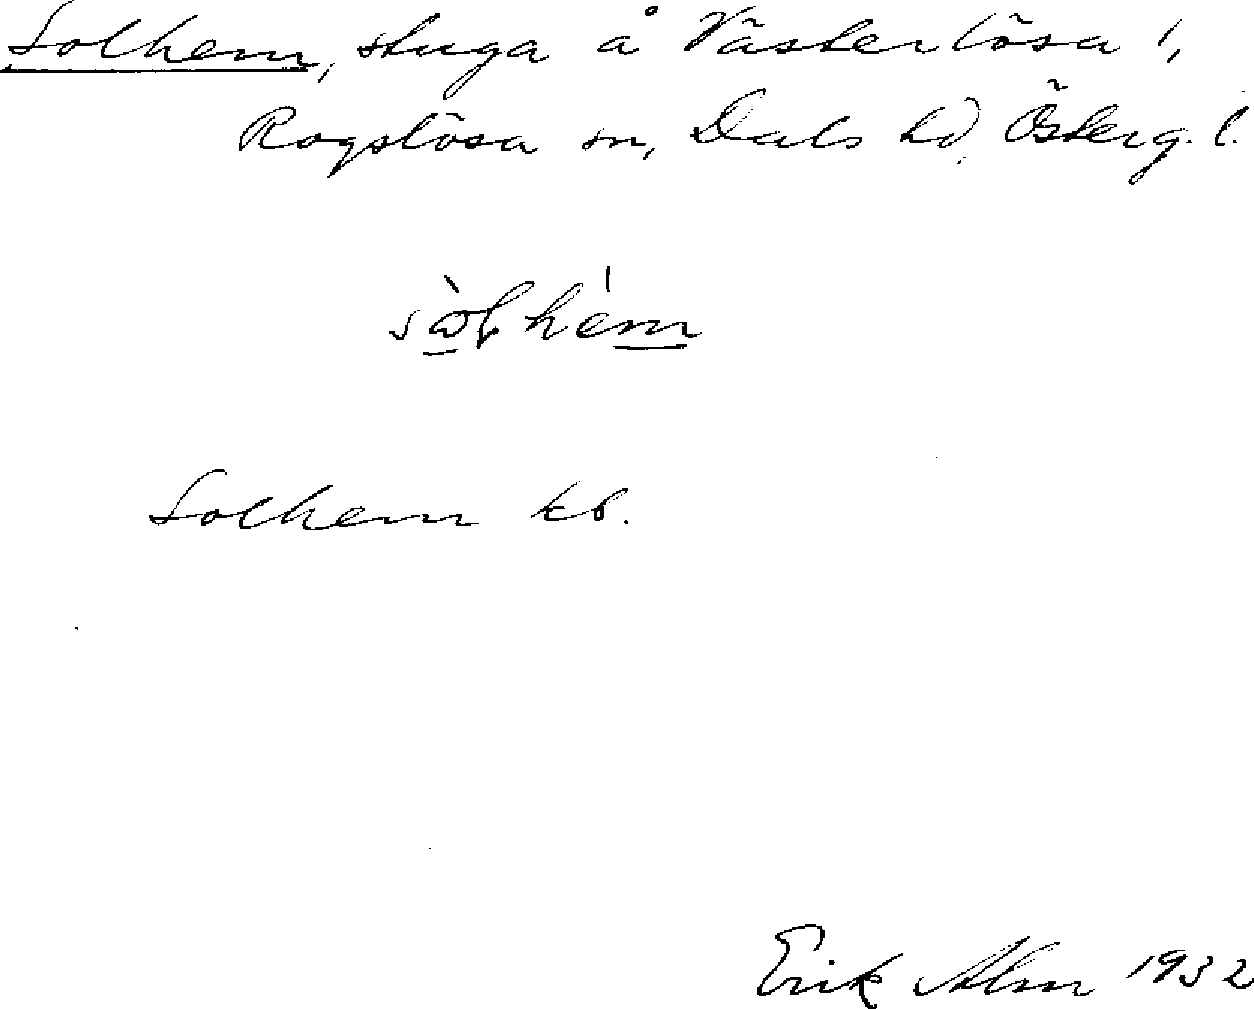 Solhem, stuga å Västerlösa 1,
Rogslösa sn, Dals hd, Österg. l.
sòlhèm
Solhem kb.
Erik Alm 1932